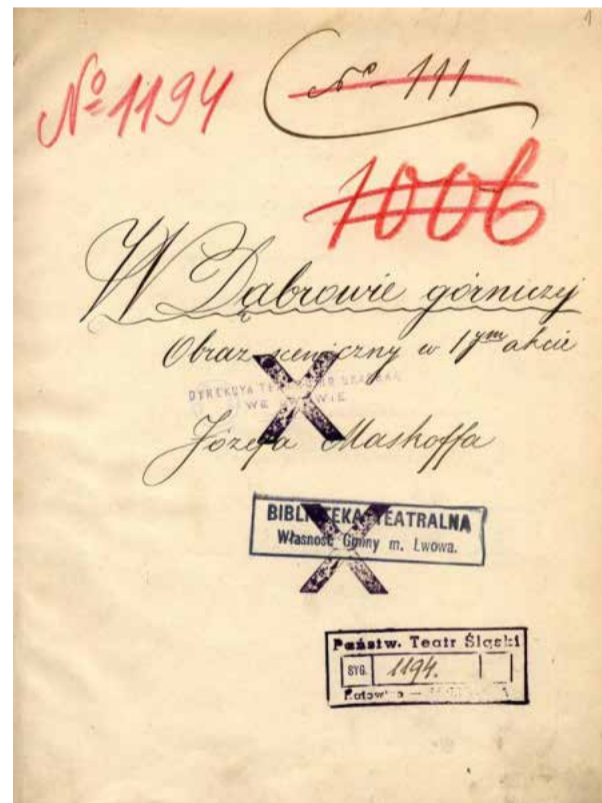 1
№ 1194
№ 111
1006
W Dąbrowie górniczej
Obraz sceniczny w 1ym akcie
DYREKCYA
WE LWOWIE
Józefa Maskoffa
BIBLIOTEKA TEATRALNA
Własność Gminy m. Lwowa.
Państw. Teatr Śląski
SYG. 1194.
Katowice —